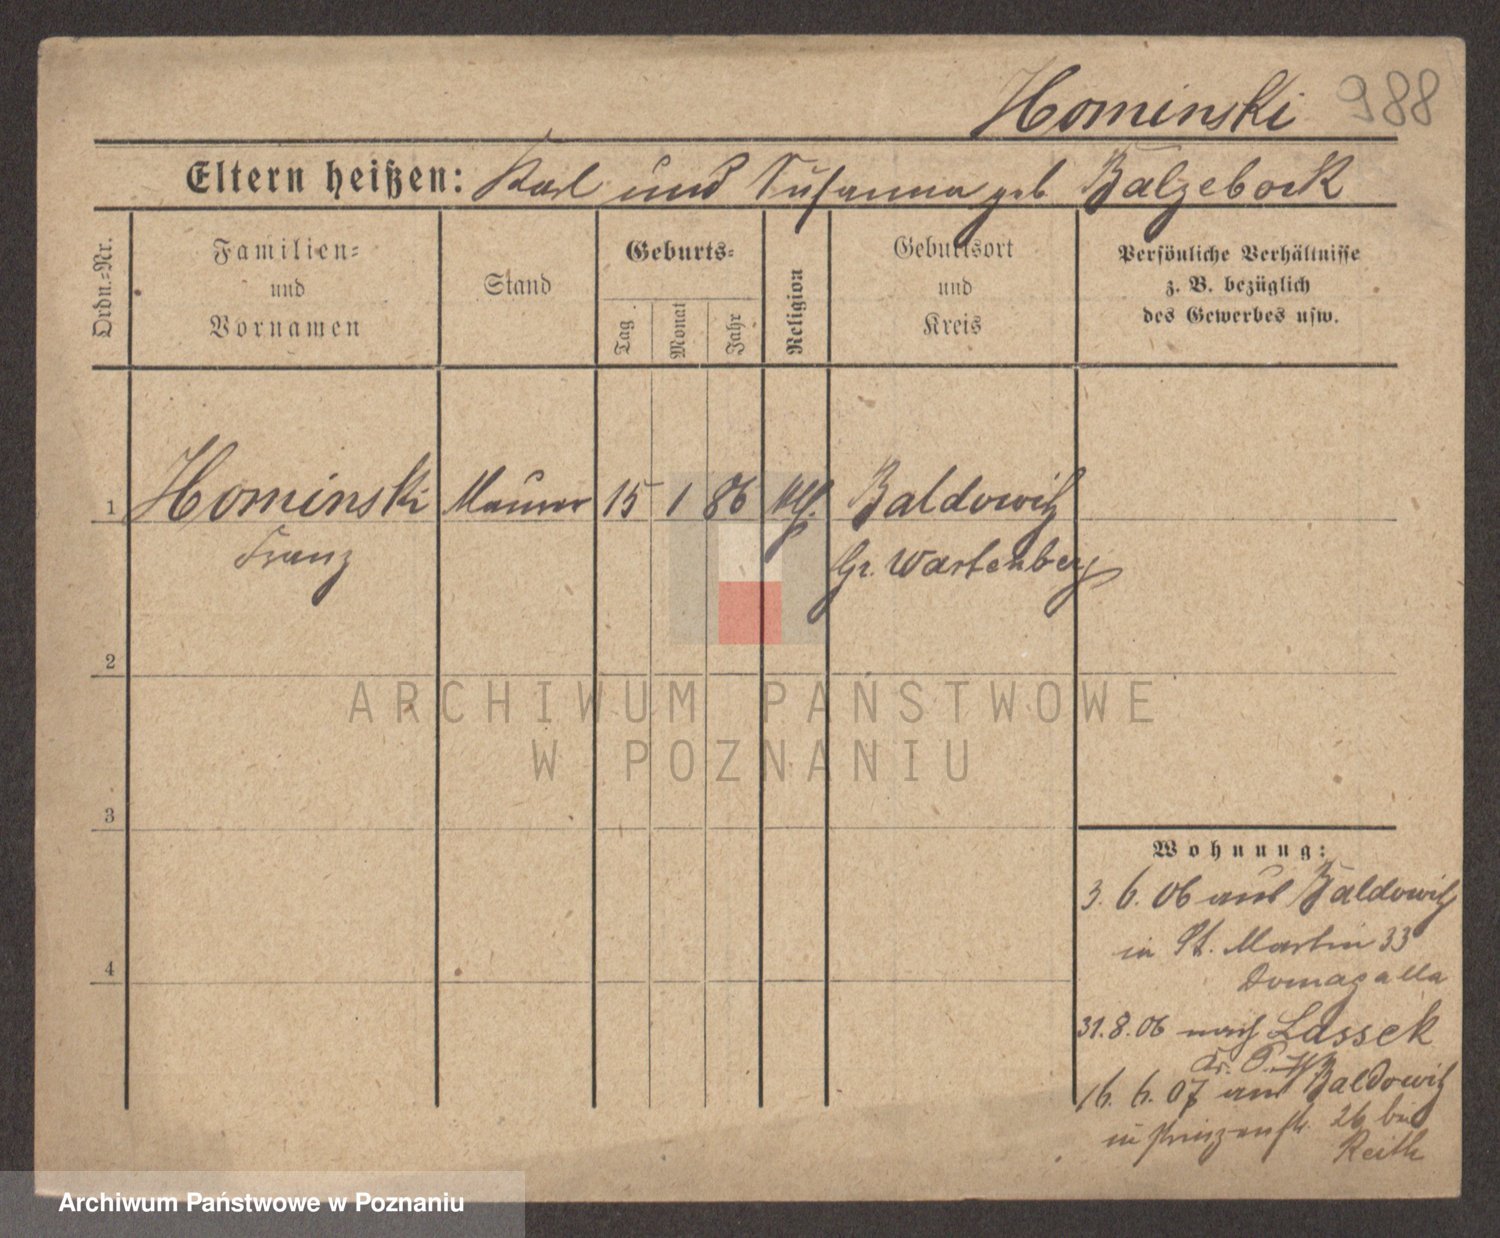 Hominski 988
Eltern heißen: Karl und Susanna geb Balzebock
Ordn.-Nr.
Familien-
und
Vornamen
Stand
Geburts-
Tag
Monat
Jahr
Religion
Geburtsort
und
Kreis
Persönliche Verhältnisse
z. B. bezüglich
des Gewerbes usw.
1 Hominski Maurer 15 1 86 Baldowitz
Franz Gr. Wartenberg
2
ARCHIWUM PAŃSTWOWE
W POZNANIU
3
Wohnung:
3. 6. 06 aus Baldowitz
in St. Martin 33
Domagalla
4
31. 8. 06 nach Lassek
Kr. P. W
16. 6. 07 aus Baldowitz
in Prinzenstr. 26 bei
Reith
Archiwum Państwowe w Poznaniu